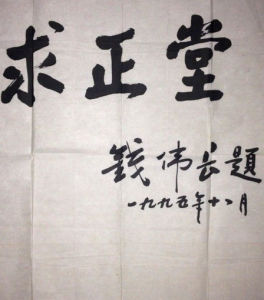 求正堂
錢伟长題
一九九五年十八月